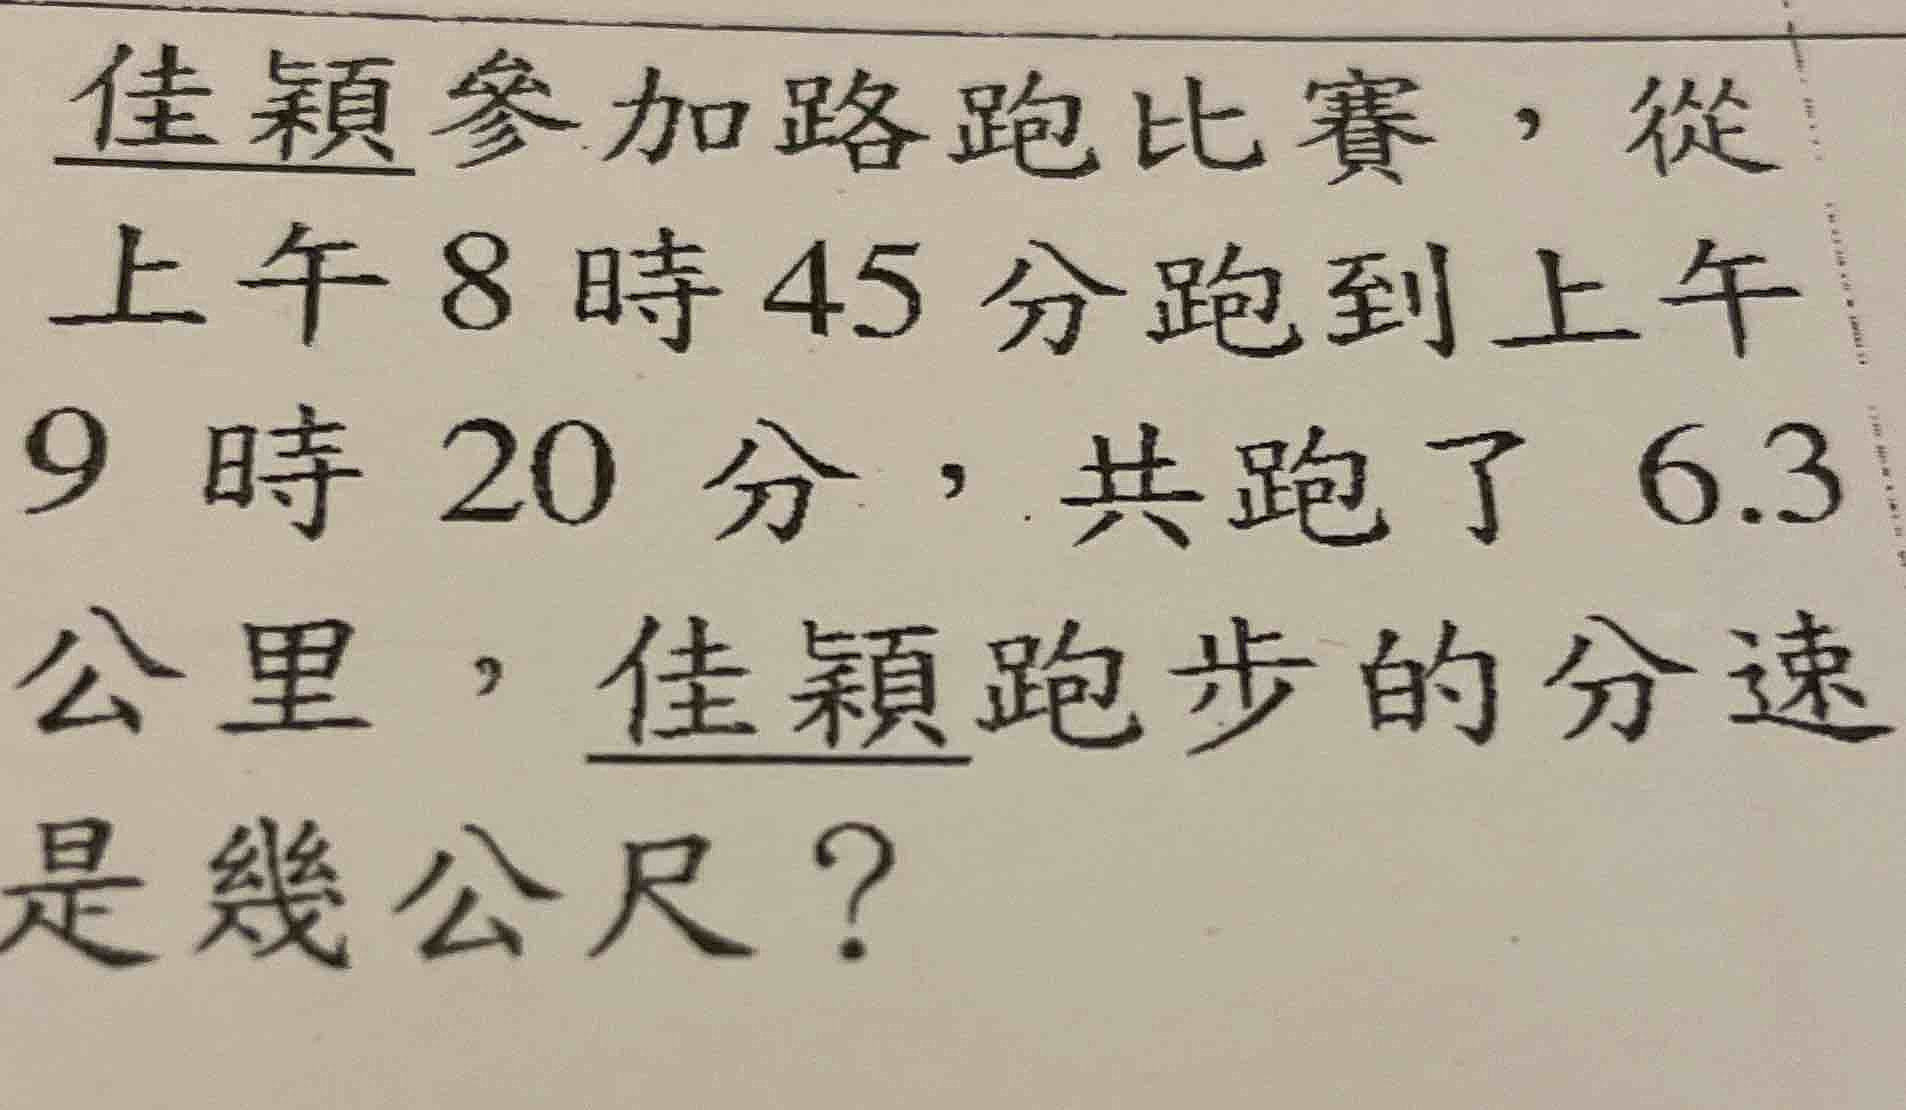 佳穎參加路跑比賽，從
上午8時45分跑到上午
9時20分，共跑了6.3
公里，佳穎跑步的分速
是幾公尺？